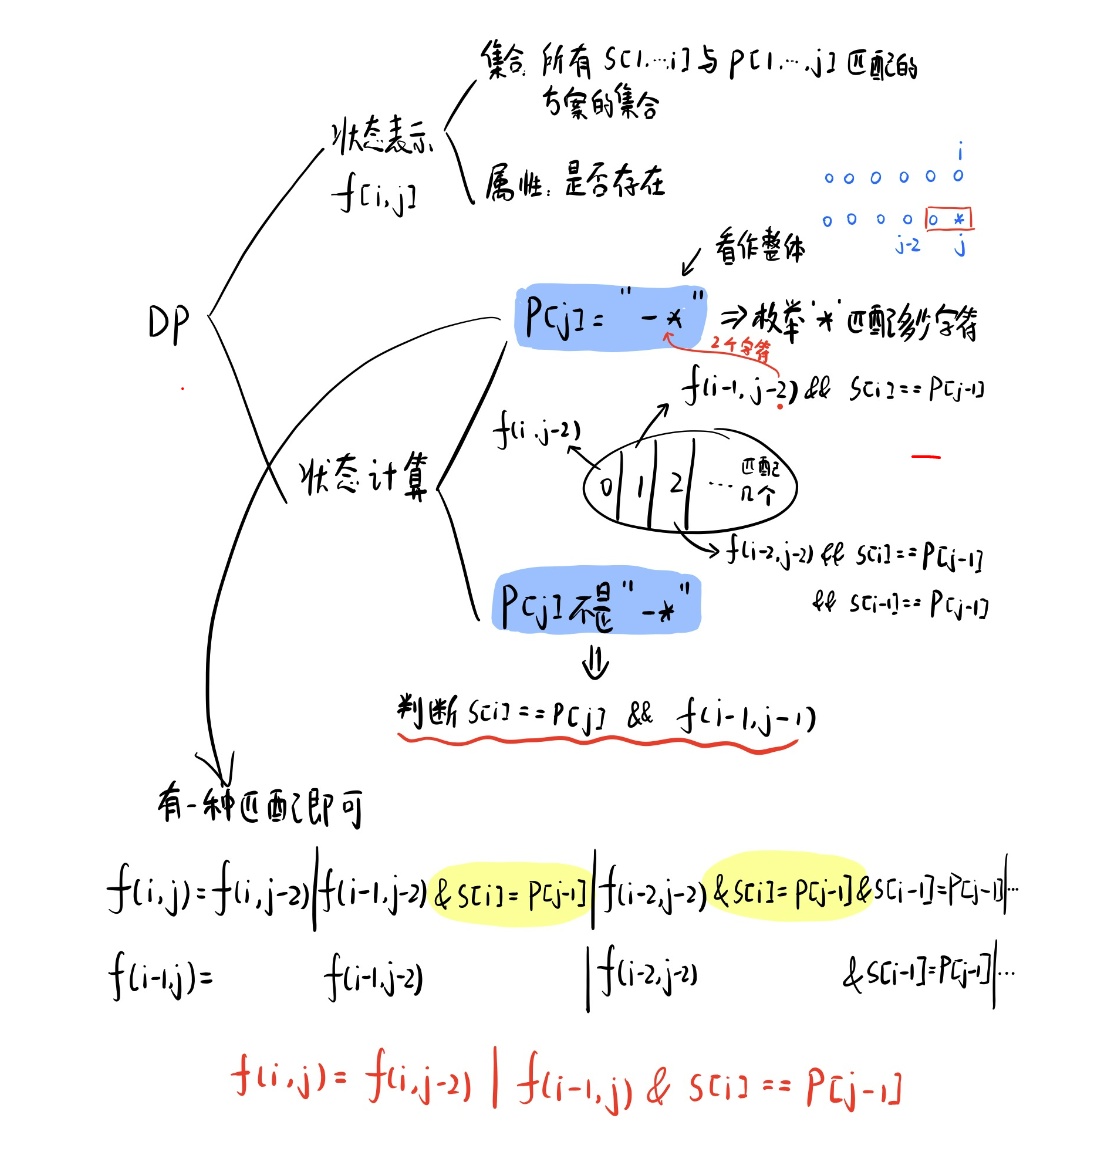 集合: 所有 S[1,…i] 与 P[1,…,j] 匹配的
方案的集合
状态表示
f[i,j]
属性: 是否存在
i
o o o o o o
o o o o o *
j-2 j
看作整体
DP
P[j] = "-*" ⇒ 枚举'*'匹配多少字符
2个字符
f(i-1, j-2) && S[i] == P[j-1]
f(i,j-2)
状态计算
0 1 2 … 匹配
几个
f(i-2,j-2) && S[i] == P[j-1]
&& S[i-1] == P[j-1]
P[j] 不是 "-*"
⇓
判断 S[i] == P[j] && f(i-1,j-1)
有一种匹配即可
f(i,j) = f(i,j-2) | f(i-1,j-2) & S[i] = P[j-1] | f(i-2,j-2) & S[i] = P[j-1] & S[i-1] = P[j-1] | …
f(i-1,j) = f(i-1,j-2) | f(i-2,j-2) & S[i-1] = P[j-1] | …
f(i,j) = f(i,j-2) | f(i-1,j) & S[i] == P[j-1]